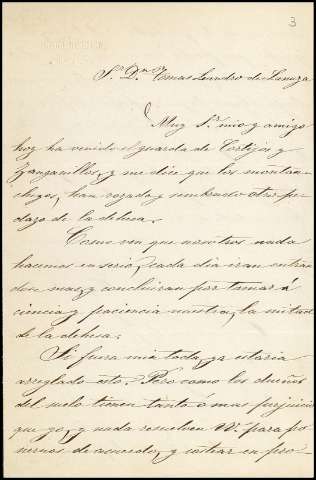 3
Sr. Dn. Tomas Leandro de Lanuza
Muy Sr. mio y amigo
hoy ha venido el guarda de Cortijos y
Ganzanillos, y me dice que los montan-
chegos, han rozado y sembrado otro pe-
dazo de la dehesa.
Como ven que nosotros nada
hacemos en serio, cada dia iran entran
dose mas, y concluiran por tomar á
ciencia y paciencia nuestra, la mitad
de la dehesa.
Si fuera mia toda, ya estaria
arreglado esto. Pero como los dueños
del suelo tienen tanto ó mas perjuicio
que yo, y nada resuelven Vs. para po
nernos de acuerdo, y entrar en pro-